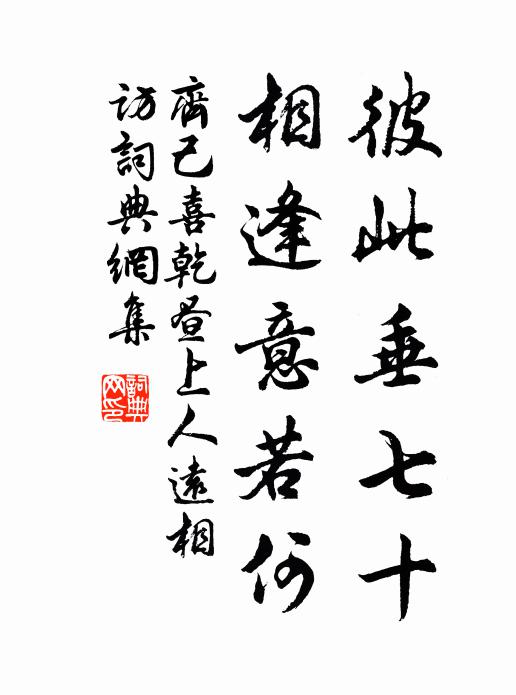 彼此垂七十
相逢意若何
齊己喜乾昼上人遠相
訪詞典網集
詞典
网印